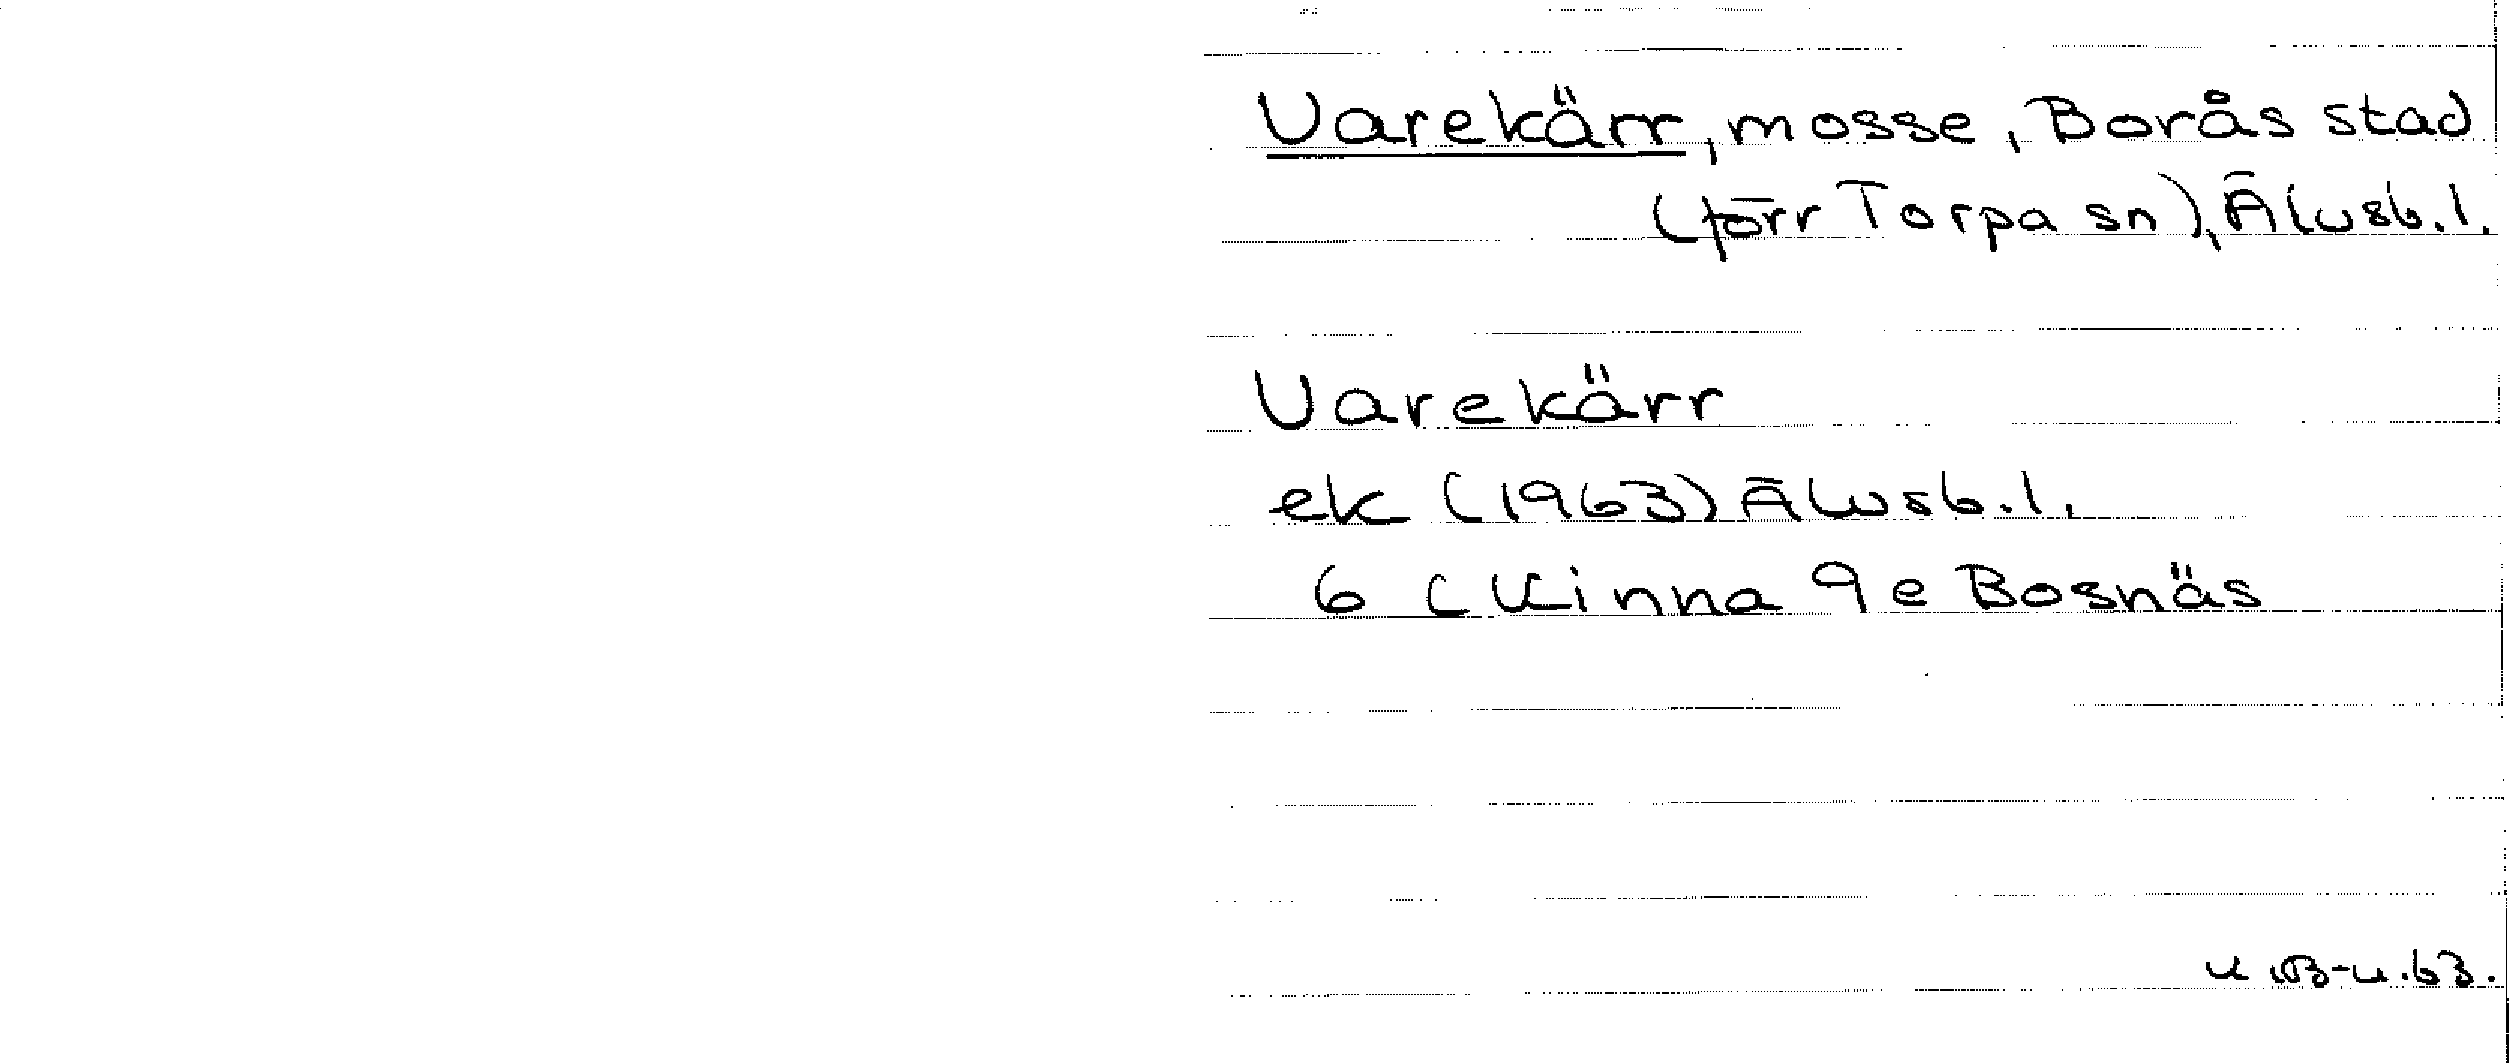 Varekärr, mosse, Borås stad
(förr Torpa sn), Älvsb.l.
Varekärr
ek (1963) Älvsb.l.
6 C Kinna 9e Bosnäs